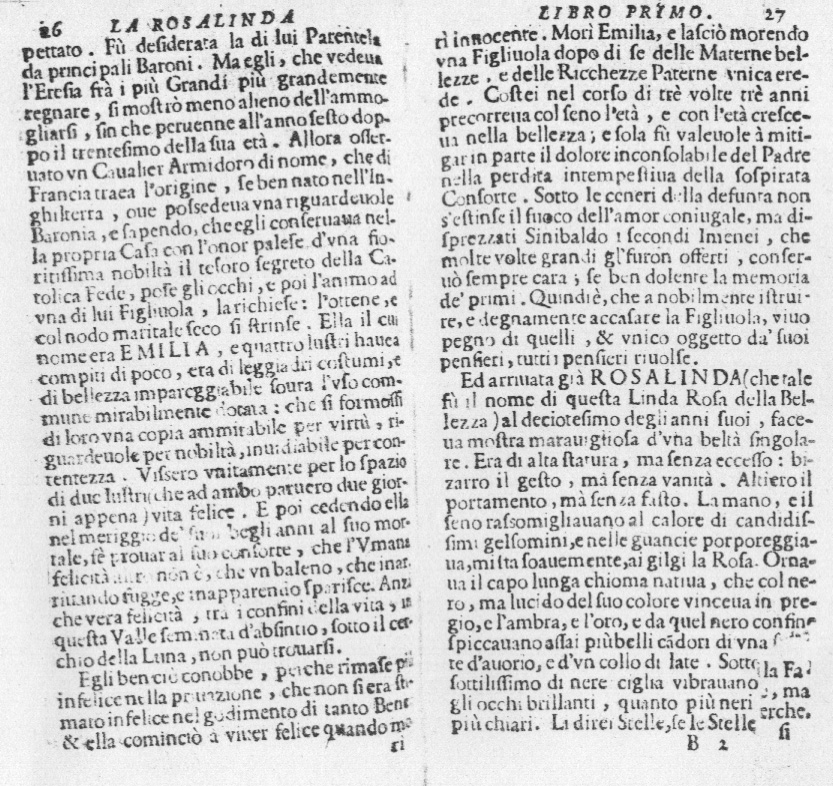 26 LA ROSALINDA
pettato. Fù desiderata la di lui Parentela
da principali Baroni. Ma egli, che vedeua
l'Eresia frà i più Grandi più grandemente
regnare, si mostrò meno alieno dell'ammo-
gliarsi, sin che peruenne all'anno sesto dop-
po il trentesimo della sua età. Allora osser-
uato vn Caualier Armidoro di nome, che di
Francia traea l'origine, se ben nato nell'In-
ghilterra, oue possedeua vna riguardeuole
Baronia, e sapendo, che egli conseruaua nel-
la propria Casa con l'onor palese d'vna fio-
ritissima nobiltà il tesoro segreto della Ca-
tolica Fede, pose gli occhi, e poi l'animo ad
vna di lui Figliuola, la richiese: l'ottene, e
col nodo maritale seco si strinse. Ella il cui
nome era EMILIA, e quattro lustri hauea
compiti di poco, era di leggiadri costumi, e
di bellezza impareggiabile soura l'vso com-
mune mirabilmente dotata: che si formossi
di loro vna copia ammirabile per virtù, ri-
guardeuole per nobiltà, inuidiabile per con-
tentezza. Vissero vnitamente per lo spazio
di due lustri (che ad ambo paruero due gior-
ni appena) vita felice. E poi cedendo ella
nel meriggio de' suoi begli anni al suo mor-
tale, fè prouar al suo consorte, che l'Vmana
felicità altro non è, che vn baleno, che
fugge, e in apparendo sparisce. Anzi
che vera felicità, trà i confini della vita, in
questa Valle seminata d'absintio, sotto il cer-
chio della Luna, non può trouarsi.
Egli ben ciò conobbe, perche rimase più
infelice nella priuazione, che non si era sti-
mato infelice nel godimento di tanto Bene
& ella cominciò a viuer felice quando mo
ri
LIBRO PRIMO. 27
rì innocente. Morì Emilia, e lasciò morendo
vna Figliuola dopo di se delle Materne bel-
lezze, e delle Ricchezze Paterne vnica ere-
de. Costei nel corso di trè volte trè anni
precorreua col seno l'età, e con l'età cresce-
ua nella bellezza; e sola fù valeuole à miti-
gar in parte il dolore inconsolabile del Padre
nella perdita intempestiua della sospirata
Consorte. Sotto le ceneri della defunta non
s'estinse il fuoco dell'amor coniugale, ma di-
sprezzati Sinibaldo i secondi Imenei, che
molte volte grandi gl'furon offerti, conser-
uò sempre cara; se ben dolente la memoria
de' primi. Quindi è, che a nobilmente istrui-
re, e degnamente accasare la Figliuola, viuo
pegno di quelli, & vnico oggetto da' suoi
pensieri, tutti i pensieri riuolse.
Ed arriuata già ROSALINDA (che tale
fù il nome di questa Linda Rosa della Bel-
lezza) al deciotesimo degli anni suoi, face-
ua mostra marauigliosa d'vna beltà singola-
re. Era di alta statura, ma senza eccesso: bi-
zarro il gesto, mà senza vanità. Altiero il
portamento, mà senza fasto. La mano, e il
seno rassomigliauano al calore di candidis-
simi gelsomini, e nelle guancie porporeggia-
ua, mista soauemente, ai gilgi la Rosa. Orna-
ua il capo lunga chioma natiua, che col ne-
ro, ma lucido del suo colore vinceua in pre-
gio, e l'ambra, e l'oro, e da quel nero confine
spiccauano assai più belli cãdori di vna
te d'auorio, e d'vn collo di late. Sotto la Fa
sottilissimo di nere ciglia vibrauano , ma
gli occhi brillanti, quanto più neri erche.
più chiari. Li direi Stelle, se le Stelle si
B 2